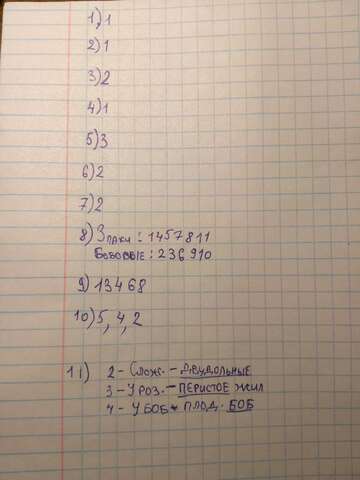 1) 1
2) 1
3) 2
4) 1
5) 3
6) 2
7) 2
8) Злаки: 1457811
Бобовые: 236910
9) 13468
10) 5, 4, 2
11) 2 - Слож. - Двудольные
3 - У роз. - Перистое жил
4 - У боб - плод. боб